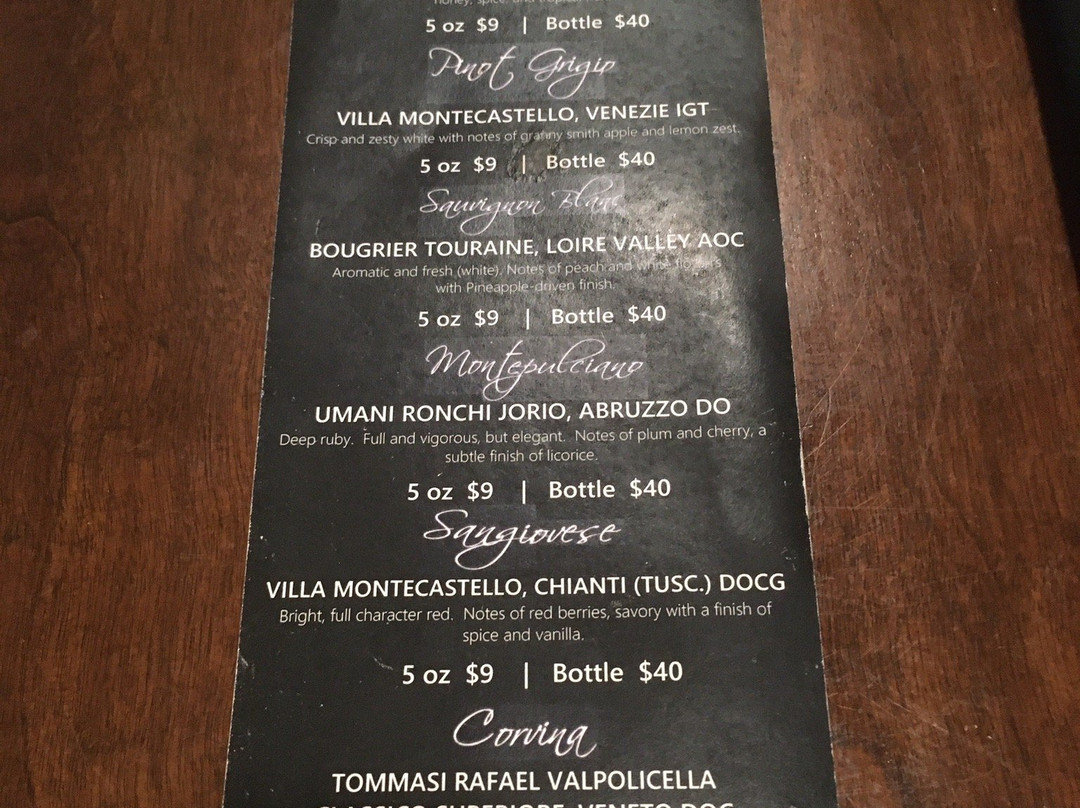 honey, spice, and
5 oz $9 | Bottle $40
Pinot Grigio
VILLA MONTECASTELLO, VENEZIE IGT
Crisp and zesty white with notes of granny smith apple and lemon zest.
5 oz $9 | Bottle $40
Sauvignon Blanc
BOUGRIER TOURAINE, LOIRE VALLEY AOC
Aromatic and fresh (white). Notes of peach and white flowers
with Pineapple-driven finish.
5 oz $9 | Bottle $40
Montepulciano
UMANI RONCHI JORIO, ABRUZZO DO
Deep ruby. Full and vigorous, but elegant. Notes of plum and cherry, a
subtle finish of licorice.
5 oz $9 | Bottle $40
Sangiovese
VILLA MONTECASTELLO, CHIANTI (TUSC.) DOCG
Bright, full character red. Notes of red berries, savory with a finish of
spice and vanilla.
5 oz $9 | Bottle $40
Corvina
TOMMASI RAFAEL VALPOLICELLA
CLASSICO SUPERIORE, VENETO DOC